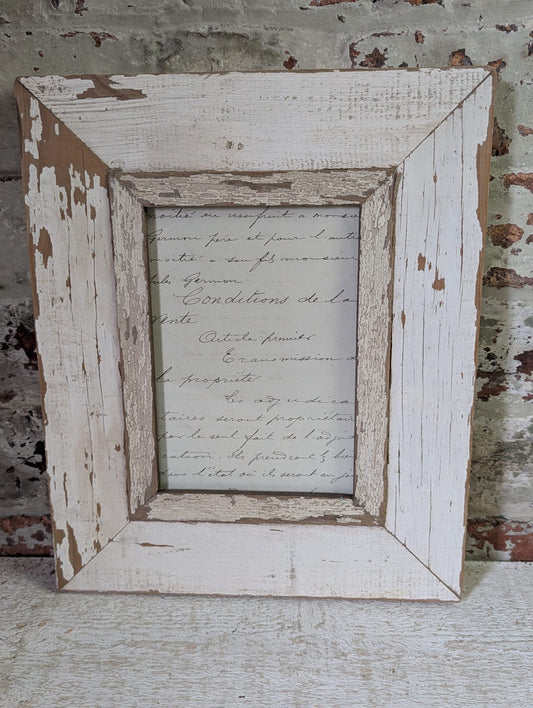 en usufruit a mons
Germon père et pour l'autre
moitié a son fils monsieur
Germon
Conditions de la
vente
Article premier
Transmission d
la propriété
Les adjudica
taires seront propriétair
par le seul fait de l'adjud
cation. Ils prendront le
dans l'état où ils seront au